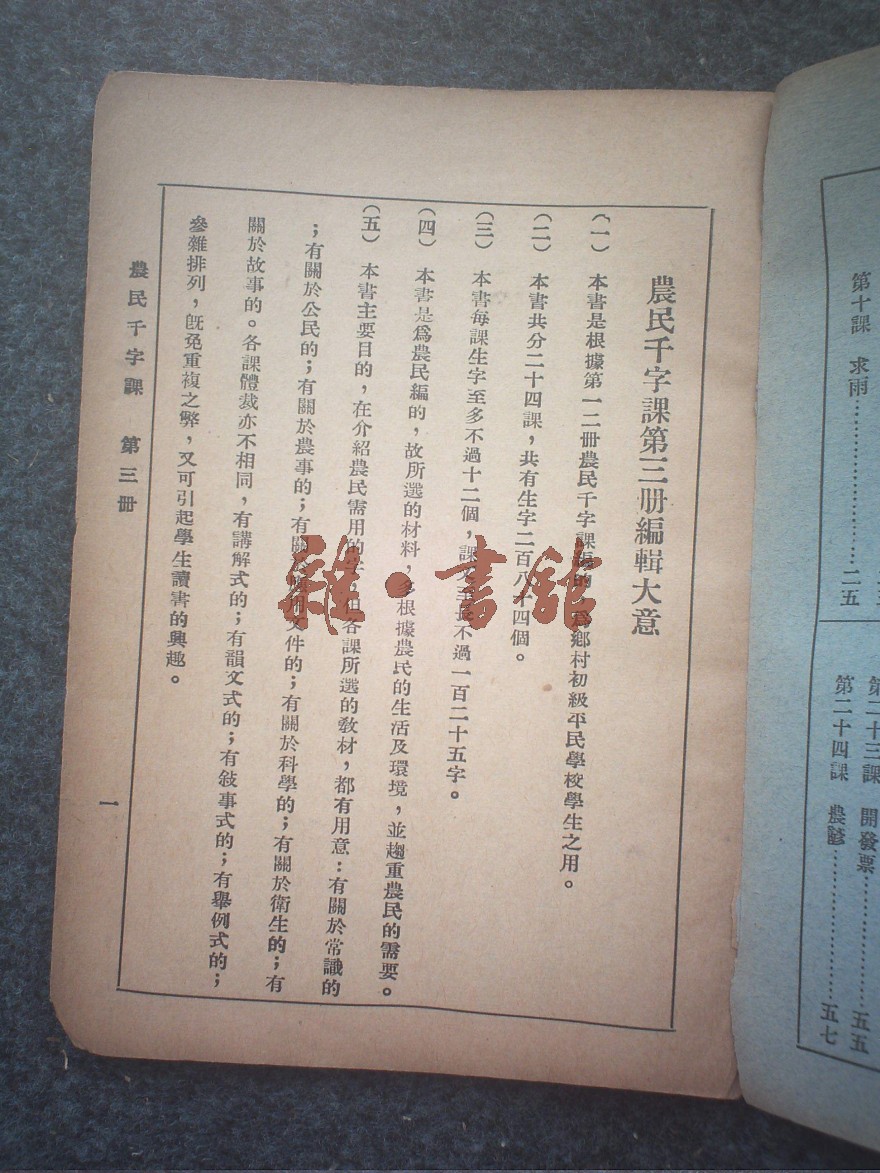 農民千字課第三册編輯大意
(一) 本書是根據第一二冊農民千字課編的,爲鄉村初級平民學校學生之用。
(二) 本書共分二十四課,共有生字二百八十四個。
(三) 本書每課生字至多不過十二個,課文至長不過一百二十五字。
(四) 本書是爲農民編的,故所選的材料,多根據農民的生活及環境,並趨重農民的需要。
(五) 本書主要目的,在介紹農民需用的字,但各課所選的敎材,都有用意:有關於常識的
;有關於公民的;有關於農事的;有關於應用文件的;有關於科學的;有關於衛生的;有
關於故事的。各課體裁亦不相同,有講解式的;有韻文式的;有敍事式的;有舉例式的;
參雜排列,旣免重複之弊,又可引起學生讀書的興趣。
農民千字課 第三冊
一
第十課 求雨……………………二五
第二十三課 開發票……………五五
第二十四課 農諺………………五七
雜·書舘